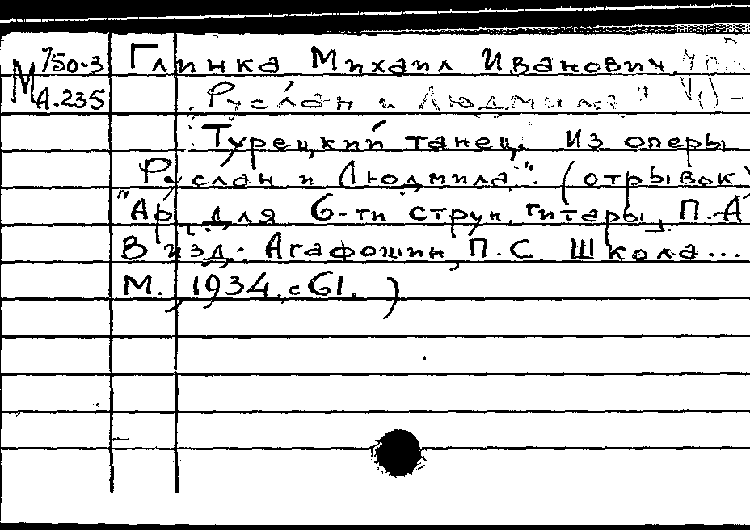 М 750-3
А.235
Глинка Михаил Иванович.
"Руслан и Людмила"
Турецкий танец. Из оперы
"Руслан и Людмила". (отрывок)
Ар. для 6-ти струн. гитары, П. А
В изд.: Агафошин, П.С. Школа...
М., 1934. с 61. )